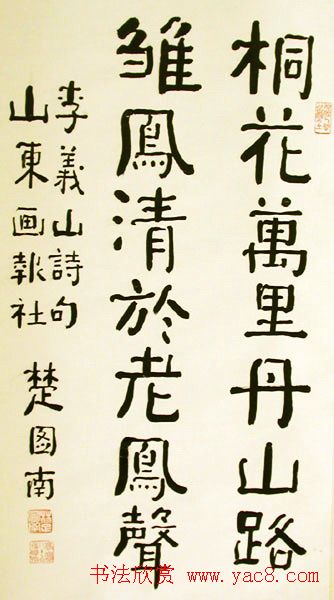 桐花萬里丹山路
雛鳳清於老鳳聲
李義山詩句
山東画報社
楚图南
书法欣赏 www.yac8.com